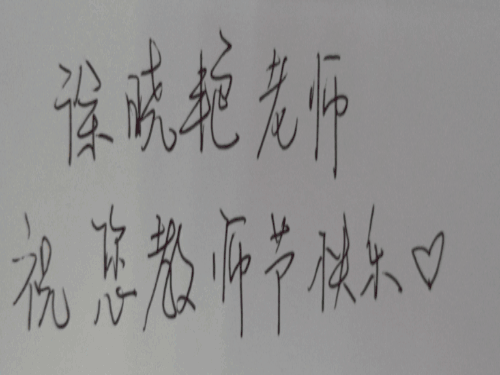 徐晓艳老师
祝您教师节快乐♡